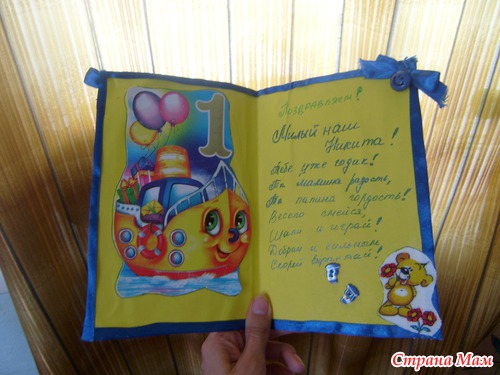 1
Поздравляем!
Милый наш
Никита!
Тебе уже годик!
Ты мамина радость,
Ты папина гордость!
Весело смейся!
Шали и играй!
Добрым и сильным
Скорей вырастай!
Страна Мам